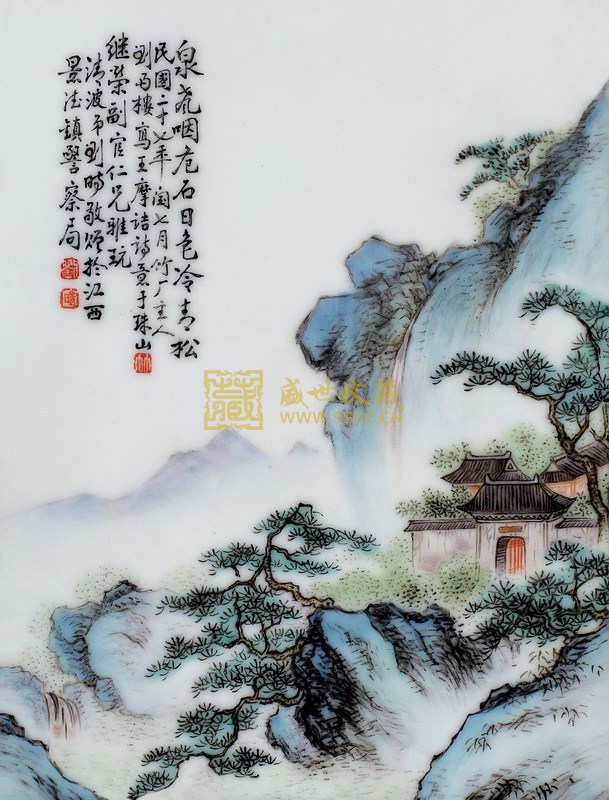 泉声咽危石日色冷青松
民國二十七年闰七月竹厂主人
刘雨樓寫王摩詰詩意于珠山
继荣副官仁兄雅玩
清波弟刘時敬赠於江西
景德鎮警察局
藏
盛世收藏
www.sssc.cn